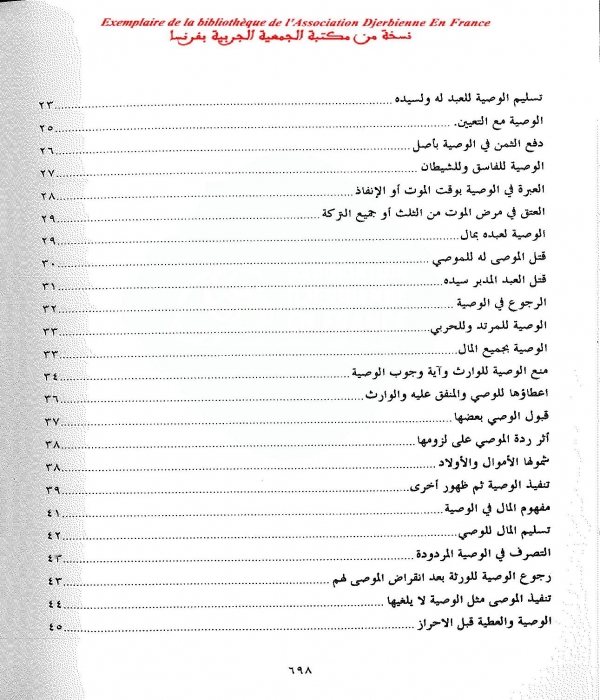 Exemplaire de la bibliothèque de l'Association Djerbienne En France
نسخة من مكتبة الجمعية الجربية بفرنسا
تسليم الوصية للعبد له ولسيده ٢٣
الوصية مع التعيين. ٢٥
دفع الثمن في الوصية بأصل ٢٦
الوصية للفاسق وللشيطان ٢٧
العبرة في الوصية بوقت الموت أو الإنفاذ ٢٨
العتق في مرض الموت من الثلث أو جميع التركة ٢٩
الوصية لعبده بمال ٢٩
قتل الموصى له للموصي ٣٠
قتل العبد المدبر سيده ٣١
الرجوع في الوصية ٣٢
الوصية للمرتد وللحربي ٣٣
الوصية بجميع المال ٣٣
منع الوصية للوارث وآية وجوب الوصية ٣٤
اعطاؤها للوصي والمنفق عليه والوارث ٣٦
قبول الوصي بعضها ٣٧
أثر ردة الموصي على لزومها ٣٨
شمولها الأموال والأولاد ٣٨
تنفيذ الوصية ثم ظهور أخرى ٣٩
مفهوم المال في الوصية ٤١
تسليم المال للوصي ٤٢
التصرف في الوصية المردودة ٤٣
رجوع الوصية للورثة بعد انقراض الموصى لهم ٤٣
تنفيذ الموصى مثل الوصية لا يلغيها ٤٤
الوصية والعطية قبل الاحراز ٤٥
٦٩٨